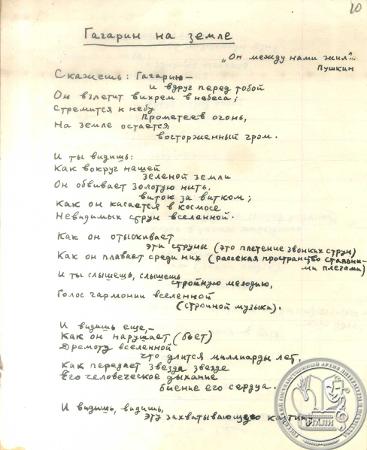 10
Гагарин на земле
„Он между нами жил"...
Пушкин
Скажешь: Гагарин —
и вдруг перед тобой
Он взлетит вихрем в небеса;
Стремится к небу
Прометеев огонь,
На земле остается
восторженный гром.
И ты видишь:
Как вокруг нашей
зеленой земли
Он обвивает золотую нить,
виток за витком;
Как он касается в космосе
Невидимых струн вселенной.
Как он отыскивает
эти струны (это плетение звонких струн)
Как он плавает среди них (рассекая пространство стальными плечами)
И ты слышишь, слышишь
стройную мелодию,
Голос гармонии вселенной
(стройной музыки).
И видишь еще, —
Как он нарушает (бьет)
Дремоту вселенной
что длится миллиарды лет,
Как передает звезда звезде
Его человеческое дыхание
биение его сердца.
И видишь, видишь,
эту захватывающую картину